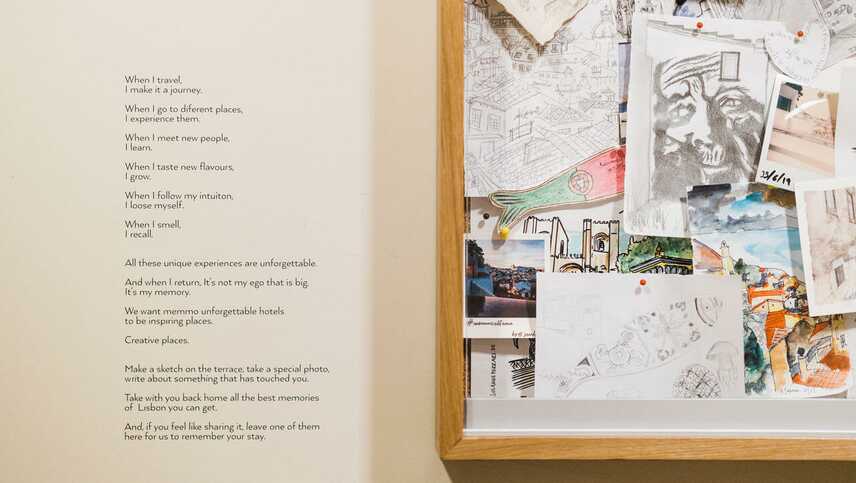 When I travel,
I make it a journey.
When I go to diferent places,
I experience them.
When I meet new people,
I learn.
When I taste new flavours,
I grow.
When I follow my intuiton,
I loose myself.
When I smell,
I recall.
All these unique experiences are unforgettable.
And when I return, It's not my ego that is big.
It's my memory.
We want memmo unforgettable hotels
to be inspiring places.
Creative places.
Make a sketch on the terrace, take a special photo,
write about something that has touched you.
Take with you back home all the best memories
of Lisbon you can get.
And, if you feel like sharing it, leave one of them
here for us to remember your stay.
25/6/19